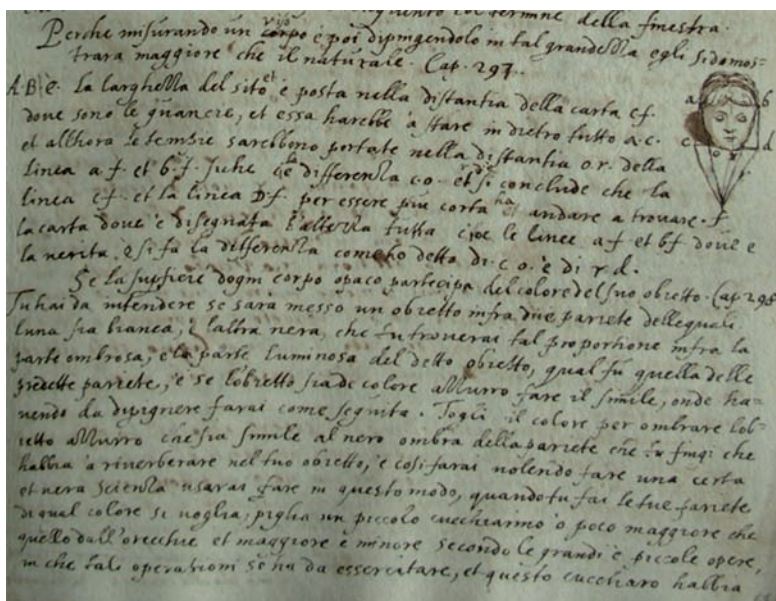 della finestra.
Perche misurando un corpo viso e poi dipingendolo in tal grandezza egli si domos=
trara maggiore che il naturale. Cap. 297.
A. B. C. La larghezza del sito et è posta nella distantia della carta e f.
dove sono le guancie, et essa harebbe à stare in dietro tutto a. c.
et allhora le tempie sarebbono portate nella distantia o. r. della
linea a. f. et b. f. la differenza c. o. et si conclude che la
linea c. f. et la linea D. f. per essere piu corta ha andare a trovare.
la carta dove è disegnata l'altezza tutta cioe le linee a f et b f dove e
la verità e si fa la differenza come ho detto di. c. o. è di r d.
Se la supficie dogni corpo opaco partecipa del colore del suo obietto. Cap 298
Tu hai da intendere se sarà messo un obietto infra due pariete delle quali
luna sia bianca, è laltra nera, che tu troverai tal proportione infra la
parte ombrosa, e la parte luminosa del detto obietto, qual fu quella delle
predette pariete, è se l'obietto sia de colore azzurro fare il simile, onde ha=
vendo da dipignere farai come seguita. Togli il colore per ombrare lob=
ietto azzurro che sia simile al nero ombra della pariete che tu fingi che
habbia à riverberare nel tuo obietto, è cosi farai volendo fare una certa
et vera scienza usarai fare in questo modo, quando tu fai le tue pariete
di qual colore si voglia, piglia un piccolo cucchiarino ò poco maggiore che
quello dall'orecchie et maggiore è minore secondo le grandi è piccole opere,
in che tali operationi se ha da essercitare, et questo cucchiaro habbia
a
b
c
d
o
r
f